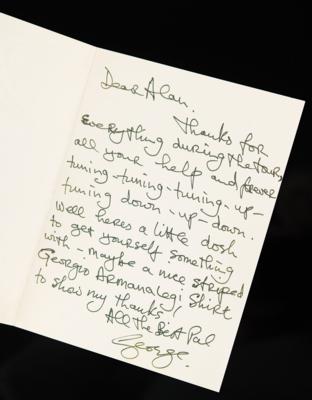 Dear Alan.
Thanks for
everything during the tours,
all your help and forever
tuning - tuning - tuning - up -
tuning down - up - down.
Well heres a little dosh
to get yourself something
with - maybe a nice striped
Georgio Armanalegi Shirt
to show my thanks,
All the Best Pal
George.